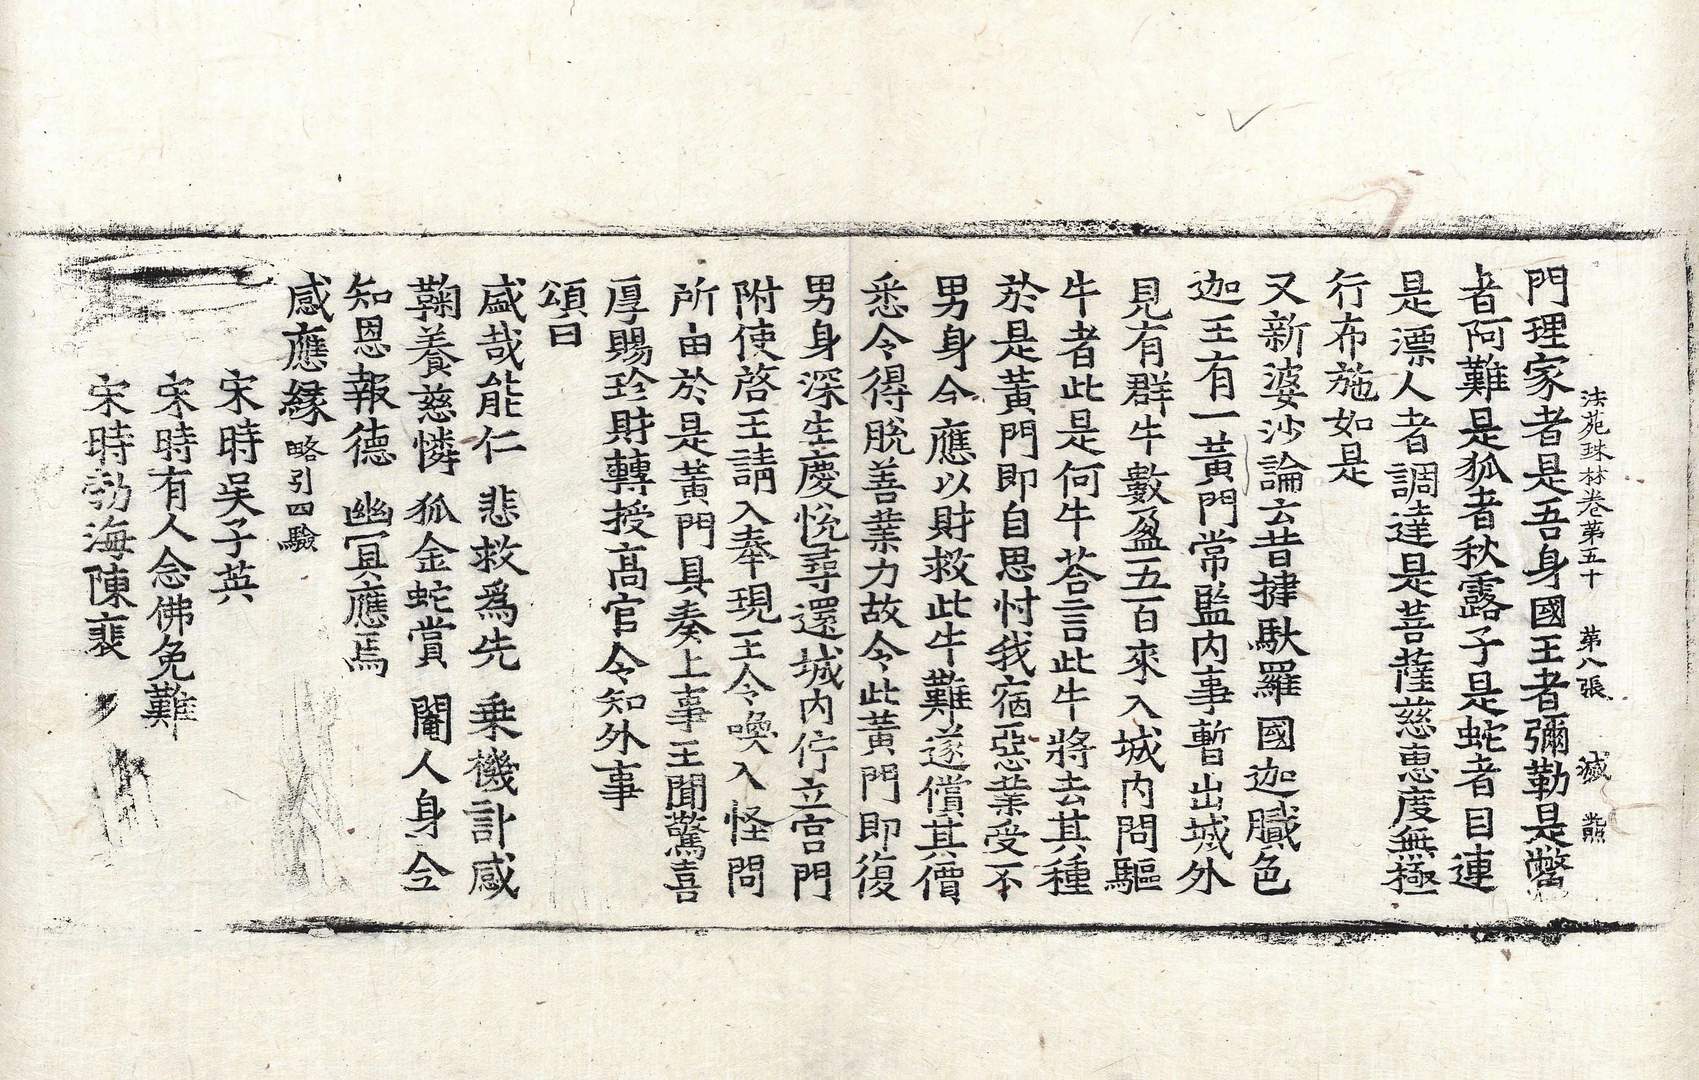 法苑珠林卷第五十 第八張 滅 㷱
門理家者是吾身國王者彌勒是鼈
者阿難是狐者秋露子是蛇者目連
是漂人者調達是菩薩慈惠度無極
行布施如是
又新婆沙論云昔揵馱羅國迦膩色
迦王有一黃門常監內事暫出城外
見有群牛數盈五百來入城內問驅
牛者此是何牛荅言此牛將去其種
於是黃門即自思忖我宿惡業受不
男身今應以財救此牛難遂償其價
悉令得脫善業力故令此黃門即復
男身深生慶悅尋還城內佇立宮門
附使啓王請入奉現王令喚入怪問
所由於是黃門具奏上事王聞驚喜
厚賜珍財轉授高官令知外事
頌曰
盛哉能仁 悲救爲先 乘機計感
鞠養慈憐 狐金蛇賞 閹人身全
知恩報德 幽冥應焉
感應緣 略引四驗
宋時吳子英
宋時有人念佛免難
宋時勃海陳裴